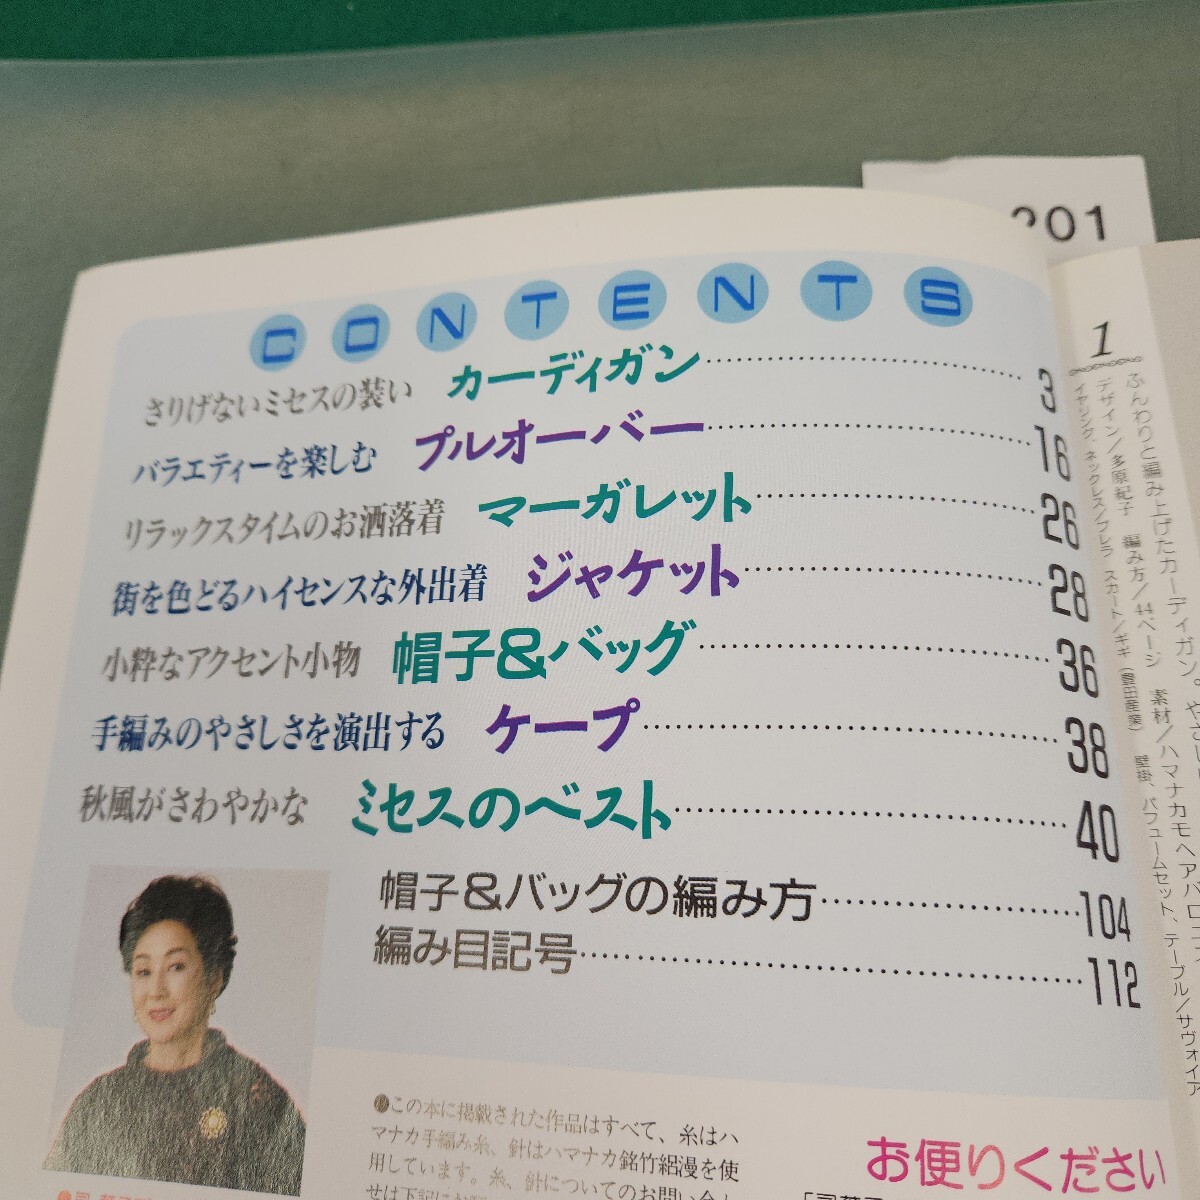 201
CONTENTS
さりげないミセスの装い カーディガン 3
バラエティーを楽しむ プルオーバー 16
リラックスタイムのお洒落着 マーガレット 26
街を色どるハイセンスな外出着 ジャケット 28
小粋なアクセント小物 帽子&バッグ 36
手編みのやさしさを演出する ケープ 38
秋風がさわやかな ミセスのベスト 40
帽子&バッグの編み方 104
編み目記号 112
●この本に掲載された作品はすべて、糸はハ
マナカ手編み糸、針はハマナカ銘竹組漫を使
用しています。糸、針についてのお問い合わ
お便りください
1
ふんわりと編み上げたカーディガン。やさし
デザイン/多原紀子 編み方/44ページ 素材/ハマナカモヘアパ
イヤリング、ネックレス/フレラ スカート/ギギ(豊田産業) 壁掛、パフュームセット、テーブル/サヴォイア